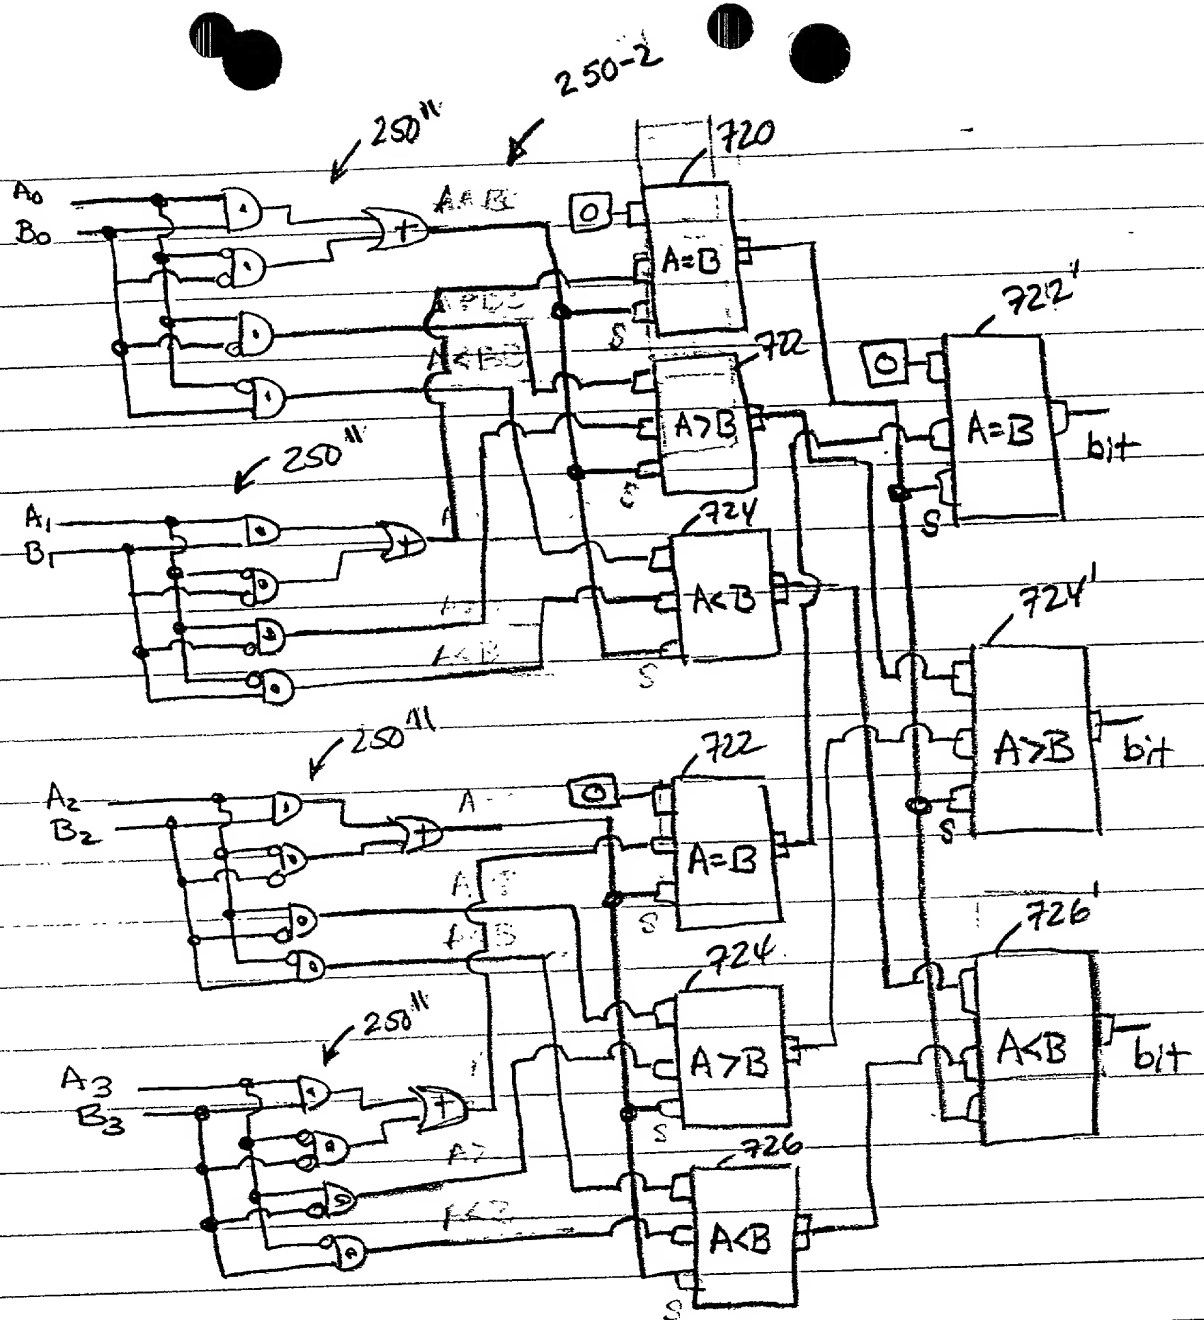 250-2
250"
720
A0
B0
A=B
0
A=B
S
722
A<B
A>B
S
722'
0
A=B
bit
S
250"
A1
B1
724
A<B
S
A<B
724'
A>B
bit
S
250"
A2
B2
722
0
A=B
S
A<B
724
A>B
S
726'
A<B
bit
250"
A3
B3
A>
726
A<B
S